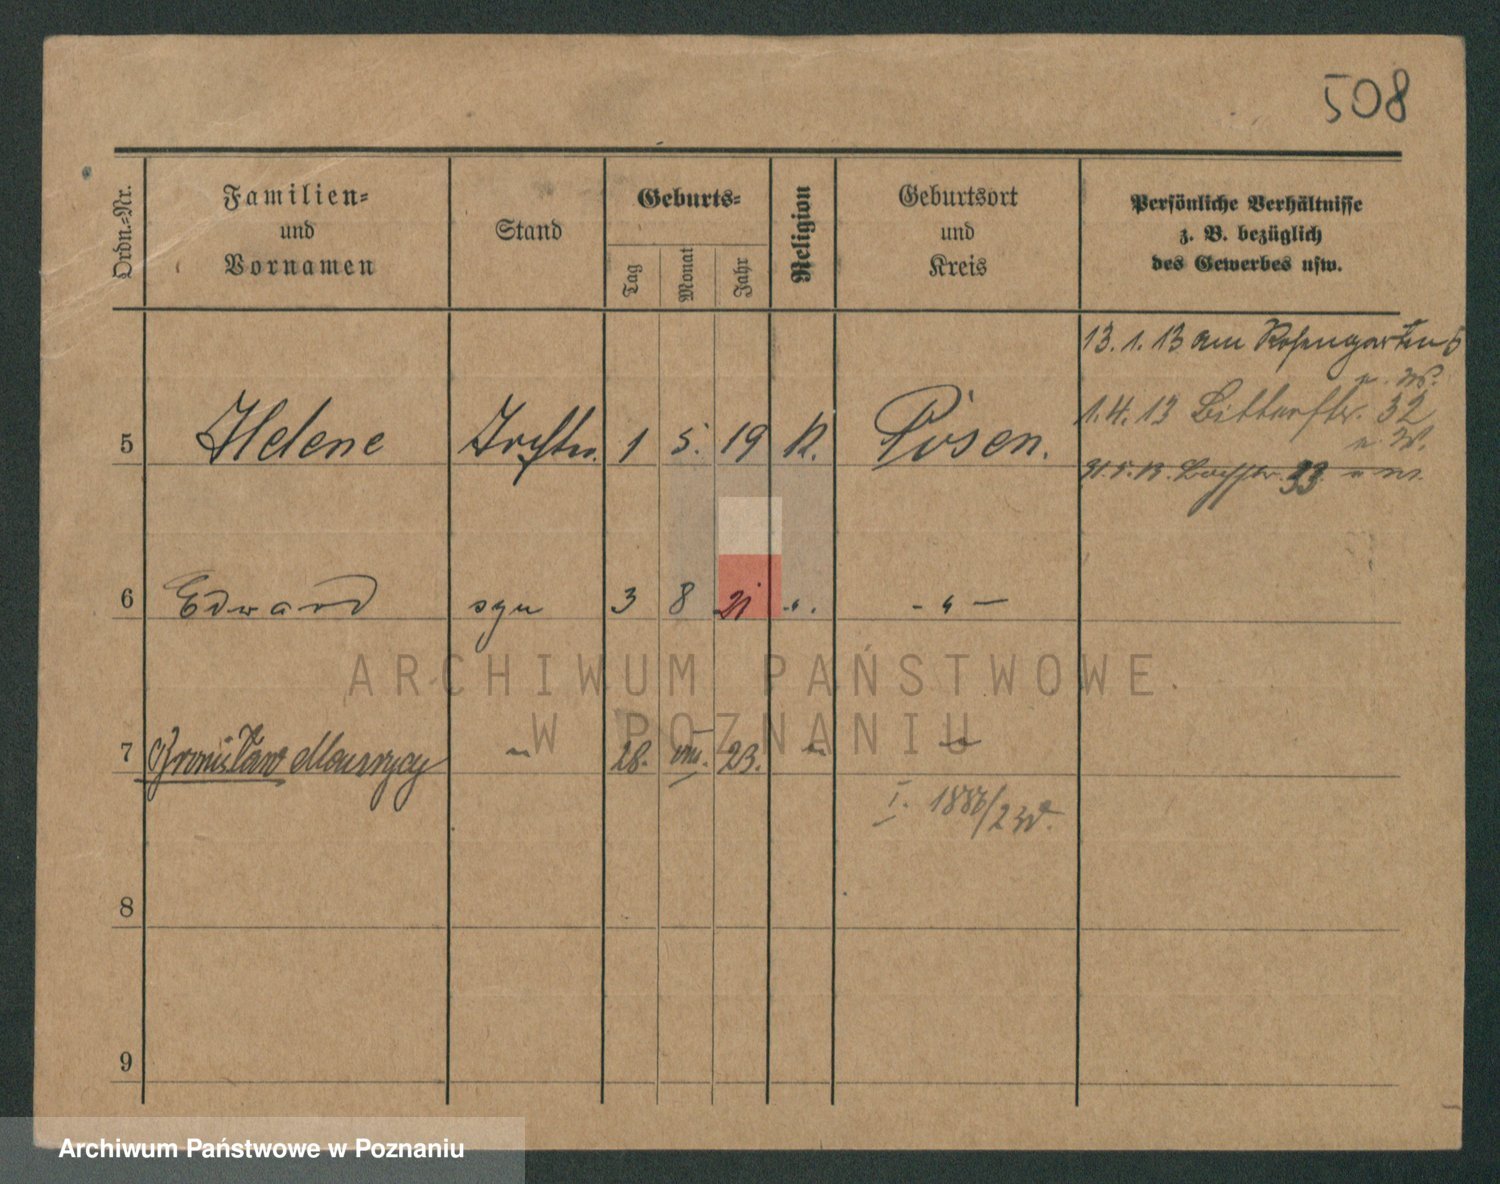 508
Ordn.-Nr.
Familien-
und
Vornamen
Stand
Geburts-
Tag
Monat
Jahr
Religion
Geburtsort
und
Kreis
Persönliche Verhältnisse
z. B. bezüglich
des Gewerbes usw.
13.1.13 am Rosengarten
1.4.13 32
33
5 Helene 1 5. 19 K. Posen.
6 Edward syn 3 8 21 -"-. -"-
ARCHIWUM PAŃSTWOWE
W POZNANIU
7 Bronisław Maurycy " 28. VIII. 23. " "
I.
8
9
Archiwum Państwowe w Poznaniu